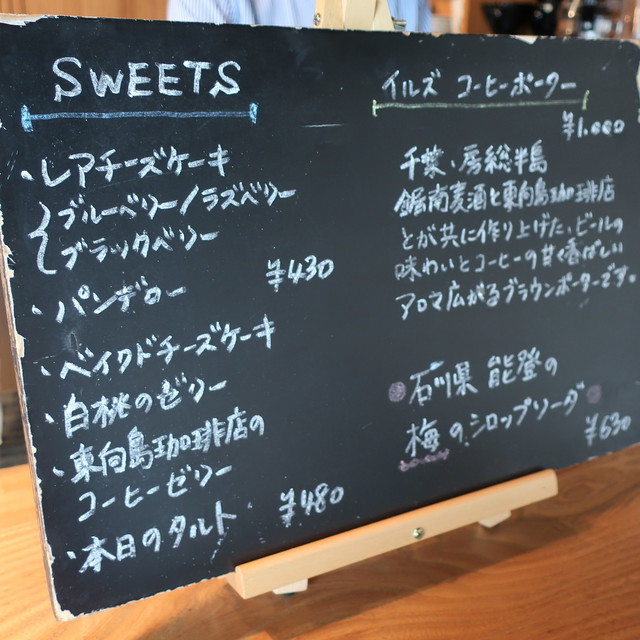 SWEETS
・レアチーズケーキ
ブルーベリー/ラズベリー
ブラックベリー
¥430
・パンデロー
・ベイクドチーズケーキ
・白桃のゼリー
・東向島珈琲店の
コーヒーゼリー
¥480
・本日のタルト
イルズ コーヒーポーター
¥1.000
千葉、房総半島
鋸南麦酒と東向島珈琲店
とが共に作り上げた、ビールの
味わいとコーヒーの甘く香ばしい
アロマ広がるブラウンポーターです。
石川県 能登の
梅のシロップソーダ
¥630